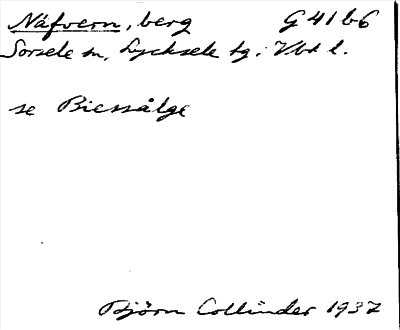 Nåfvern, berg G 41 b 6
Sorsele sn, Lycksele tg. Vbt l.
se Biessålge
Björn Collinder 1937